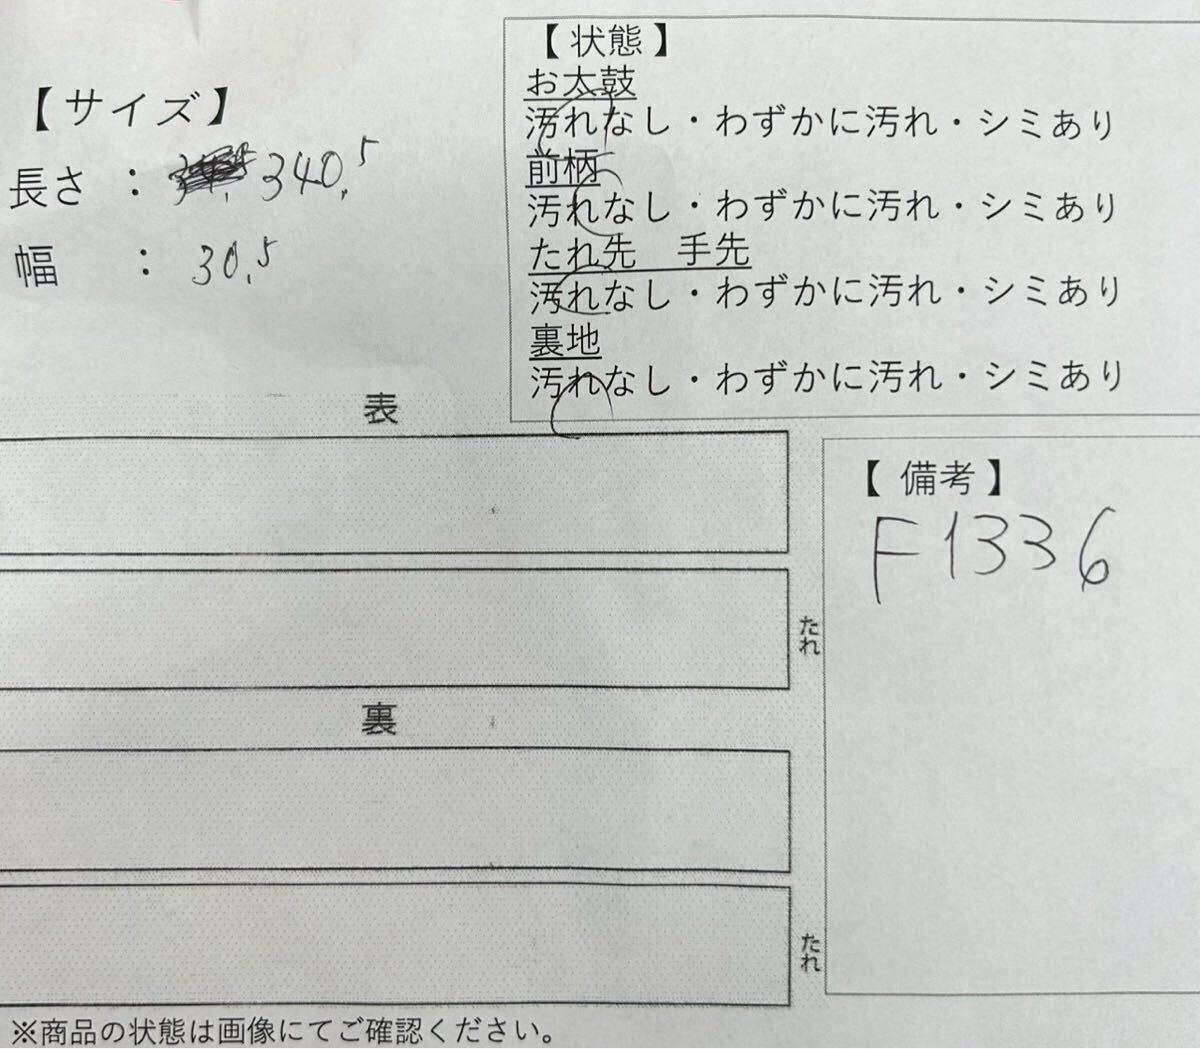 【サイズ】
長さ : 340.5
幅 : 30.5
【状態】
お太鼓
汚れなし・わずかに汚れ・シミあり
前柄
汚れなし・わずかに汚れ・シミあり
たれ先 手先
汚れなし・わずかに汚れ・シミあり
裏地
汚れなし・わずかに汚れ・シミあり
表
たれ
裏
たれ
【備考】
F1336
※商品の状態は画像にてご確認ください。